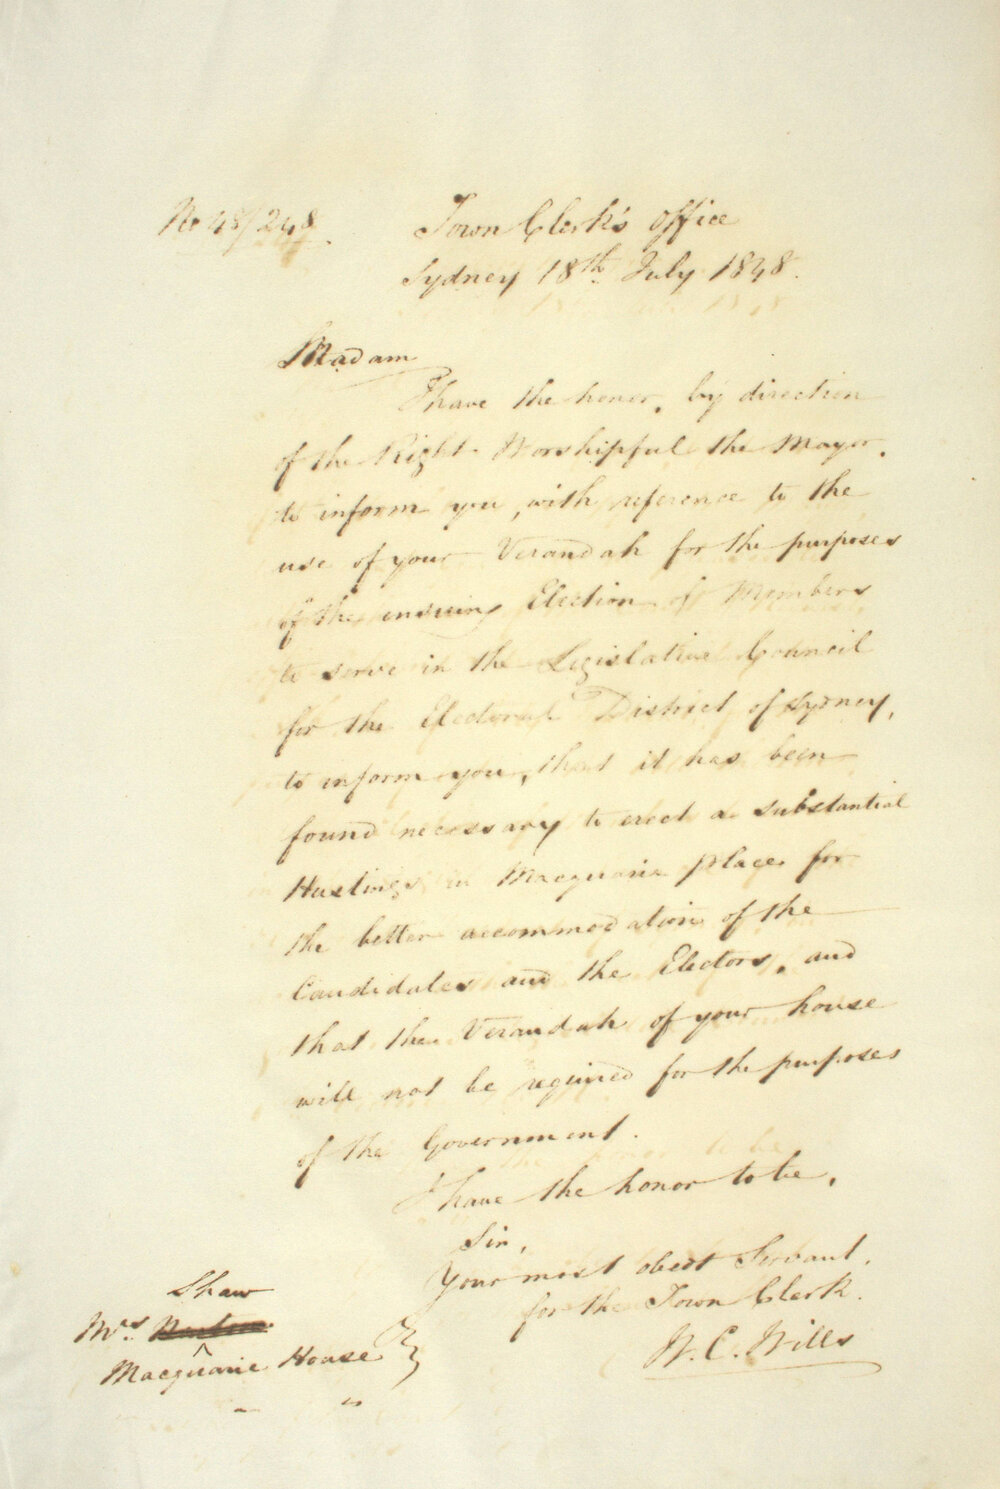 No 48/248
Town Clerk's Office
Sydney 18th July 1848.
Madam
I have the honor, by direction
of the Right Worshipful the Mayor,
to inform you, with reference to the
use of your Verandah for the purposes
of the ensuing Election of Members
to serve in the Legislative Council
for the Electoral District of Sydney,
to inform you, that it has been
found necessary to erect a substantial
Hustings in Macquarie place for
the better accommodation of the
Candidates and the Electors, and
that the Verandah of your house
will not be required for the purposes
of the Government.
I have the honor to be,
Sir,
Your most obedt Servant,
for the Town Clerk.
W. C. Wills
Shaw
Mrs.
Macquarie House
" "